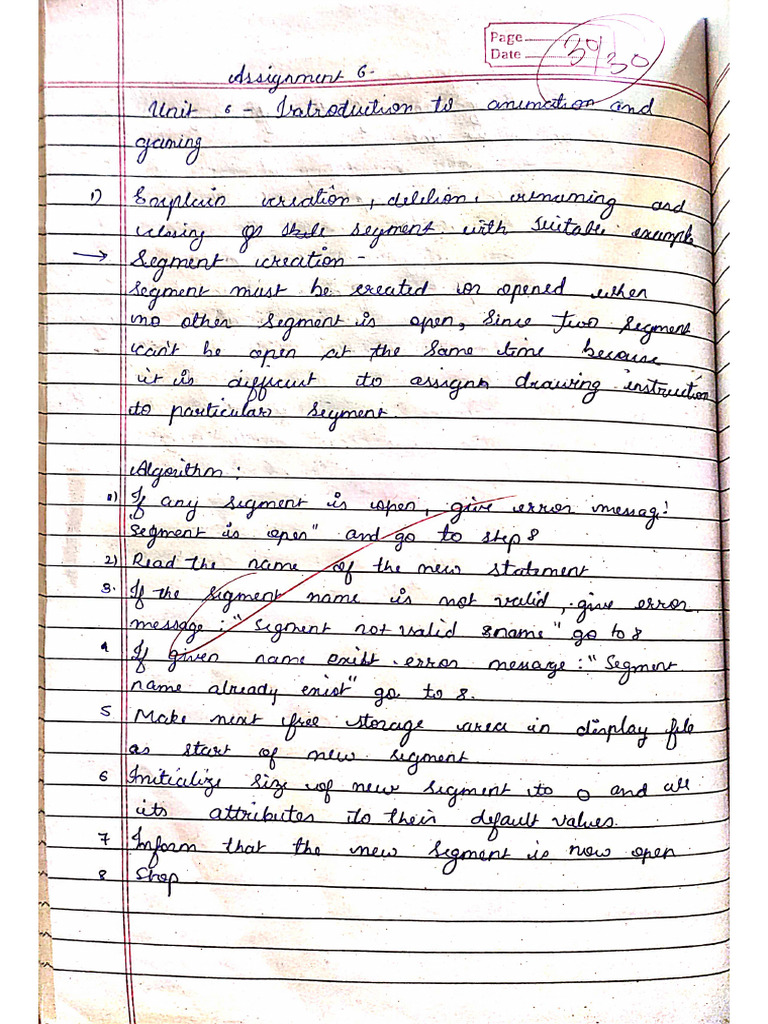 Page
Date
30/30
Assignment 6.
Unit 6 - Introduction to animation and
gaming
1) Explain creation, deletion, renaming and
closing of segment with suitable example
→ Segment creation -
Segment must be created or opened when
no other segment is open, Since two segment
can't be open at the same time because
it is difficult to assign drawing instruction
to particular segment.
Algorithm :
1) If any segment is open, give error messag:
segment is open" and go to step 8
2) Read the name of the new statement
3. If the segment name is not valid, give error
message: "Segment not valid name" go to 8
4 If given name exist error message: "Segment
name already exist" go to 8.
5 Make next free storage area in display file
as start of new segment
6 Initialize size of new segment to 0 and all
its attributes to their default values.
7 Inform that the new segment is now open
8 Stop